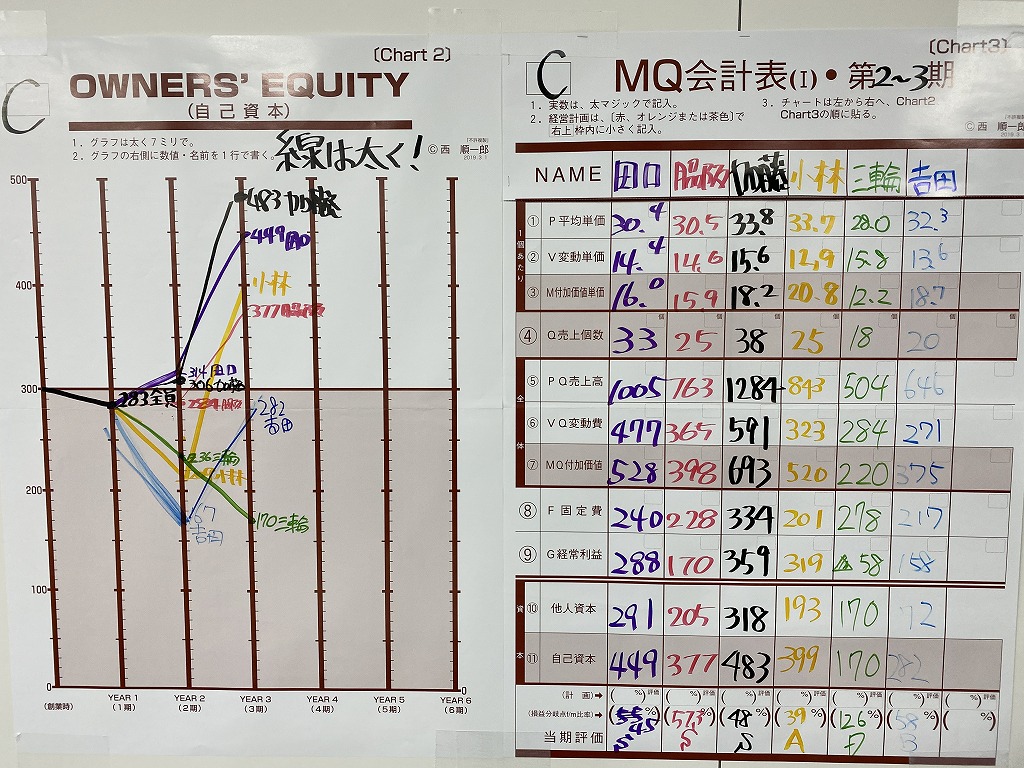 C
〔Chart 2〕
OWNERS' EQUITY
(自己資本)
1．グラフは太く7ミリで。
2．グラフの右側に数値・名前を1行で書く。
線は太く!
〔不許複製〕
© 西 順一郎
2019.3.1
500
400
300
200
100
0
0
483 加藤
449 田口
小林
377 脇阪
314 田口
306 加藤
283 全員
282
吉田
236 三輪
167
吉田
170 三輪
(創業時)
YEAR 1
(1期)
YEAR 2
(2期)
YEAR 3
(3期)
YEAR 4
(4期)
YEAR 5
(5期)
YEAR 6
(6期)
C
〔Chart3〕
MQ会計表(I)・第2〜3期
1．実数は、太マジックで記入。
2．経営計画は、〔赤、オレンジまたは茶色〕で
右上枠内に小さく記入。
3．チャートは左から右へ、Chart2
Chart3の順に貼る。
© 西 順一郎
2019.3.1
NAME 田口 脇阪 加藤 小林 三輪 吉田
1個あたり
① P平均単価 30.4 30.5 33.8 33.7 28.0 32.3
② V変動単価 14.4 14.6 15.6 12.9 15.8 13.6
③ M付加価値単価 16.0 15.9 18.2 20.8 12.2 18.7
④ Q売上個数 33 25 38 25 18 20
全体
⑤ PQ売上高 1005 763 1284 843 504 646
⑥ VQ変動費 477 365 591 323 284 271
⑦ MQ付加価値 528 398 693 520 220 375
⑧ F固定費 240 228 334 201 278 217
⑨ G経常利益 288 170 359 319 △58 158
資本
⑩ 他人資本 291 205 318 193 170 72
⑪ 自己資本 449 377 483 399 170 282
(計画)→ ( %) 評価 ( %) 評価 ( %) 評価 ( %) 評価 ( %) 評価 ( %) 評価 ( %)
(損益分岐点f/m比率)→ (45%) (57.3%) (48%) (39%) (126%) (58%) ( %)
当期評価 S S S A D B